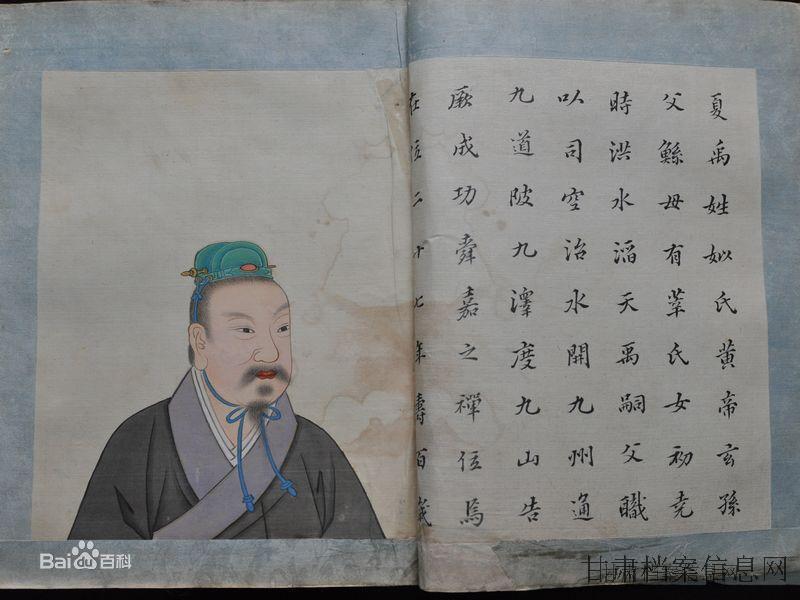 夏禹姓姒氏黄帝玄孫
父鯀母有莘氏女初堯
時洪水滔天禹嗣父職
以司空治水開九州通
九道陂九澤度九山告
厥成功舜嘉之禪位焉
在位二十七年壽百歲
Bai百科
甘肃档案信息网